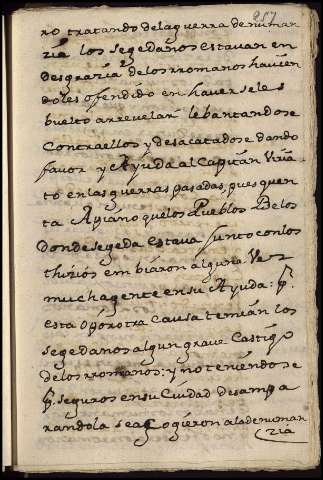 257
ro tratando dela guerra denuman
zia los segedanos estauan en
desgrazia delos rromanos hauien
doles ofendido en haverseles
buelto arrevelar lebantandose
contraellos y desacatadose dando
favor y Ayuda al Capitan Viria
to en las guerras pasadas, pues quen
ta Apiano quelos Pueblos Belos
donde segeda estava junto conlos
thitios embiaron alguna Vez
mucha gente en su Ayuda: p.
esta o por otra causa temian los
segedanos algun grave Castigo
delos rromanos: y no teniendose
p. seguros en su Ciudad desampa
randola se acogieron ala denuman
zia